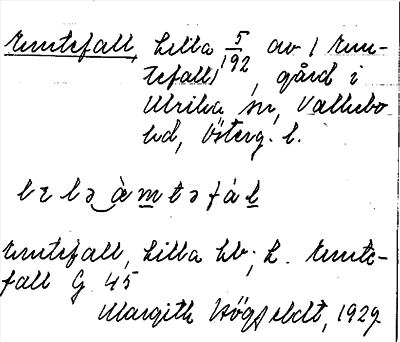 Emtefall, Lilla 5/192 av 1 Emte-
fall, gård i
Ulrika sn, Valkebo
hd, Österg. l.
lɛlə‿æ̀mtəfál
Emtefall, Lilla hb; L. Emte-
fall G 45
Margith Högfeldt, 1929